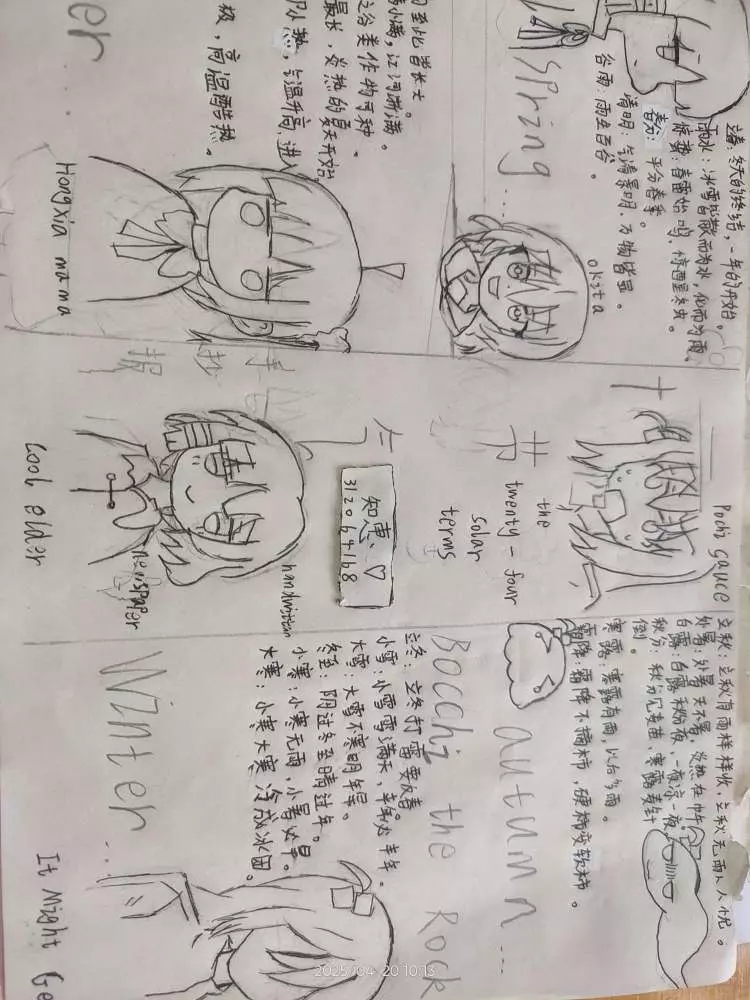 立春：冬天的终结，一年的开始。
雨水：冰雪消散而为水，化而为雨。
惊蛰：春雷始鸣，惊醒蛰虫。
春分：平分春季。
清明：气清景明，万物皆显。
谷雨：雨生百谷。
Spring...
okita
至此皆长大。
小满，江河渐满。
之谷类作物可种。
最长，炎热的夏天开始。
小热，气温升高，进入
极，高温酷热。
er...
Hongxia mama
手
抄
报
节
气
十
the
twenty-four
solar
terms
知惠、♡
312064168
handwritten
newspaper
Cool elder
Pochi sauce
立秋：立秋有雨样样收，立秋无雨人人忧。
处暑：处暑天不暑，炎热在中午。
白露：白露秋分夜，一夜凉一夜。
秋分：秋分见麦苗，寒露麦针
倒。
寒露：寒露有雨，以后多雨。
霜降：霜降不摘柿，硬柿变软柿。
autumn...
Bocchi the Rock
立冬：立冬打雷要反春
小雪：小雪雪满天，来年必丰年。
大雪：大雪不寒明年旱。
冬至：阴过冬至晴过年。
小寒：小寒无雨，小暑必旱。
大寒：小寒大寒 冷成冰团。
Winter...
It Might Ge
2025/04/20 10:13